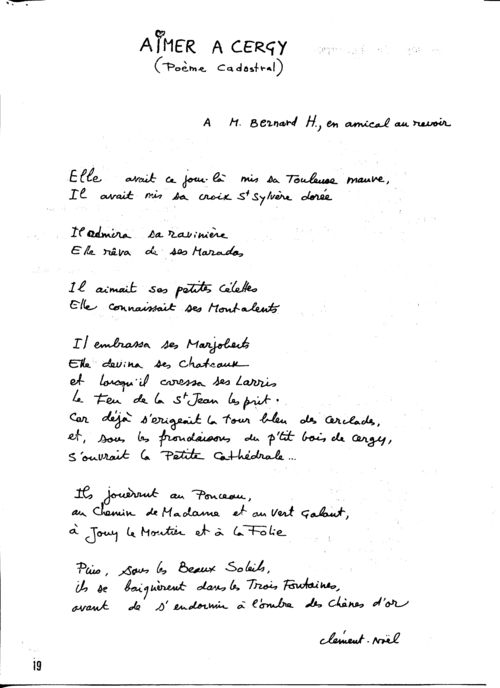 AIMER A CERGY
(Poème Cadastral)
A M. Bernard H., en amical au revoir
Elle avait ce jour-là mis sa Touleuse mauve,
Il avait mis sa croix St Sylvère dorée
Il admira sa ravinière
Elle rêva de ses Maradas
Il aimait ses petites Célettes
Elle connaissait ses Montalents
Il embrassa ses Marjoberts
Elle devina ses Chateaux
et lorsqu'il caressa ses Larris
le Feu de la St Jean les prit.
Car déjà s'erigeait la Tour bleu des Cerclades,
et, sous les frondaisons du p'tit bois de Cergy,
s'ouvrait la Petite Cathédrale...
Ils jouèrent au Ponceau,
au Chemin de Madame et au Vert Galant,
à Jouy le Moutier et à la Folie
Puis, sous les Beaux Soleils,
ils se baignèrent dans les Trois Fontaines,
avant de s'endormir à l'ombre des Chênes d'or
Clément-Noël
19